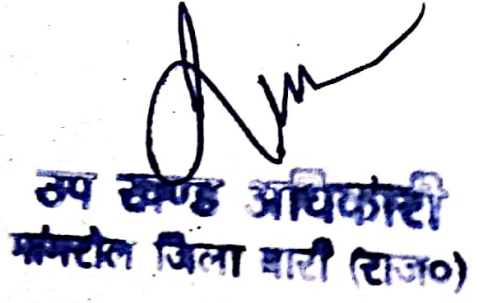 उप खण्ड अधिकारी
मांगरोल जिला बारां (राज०)